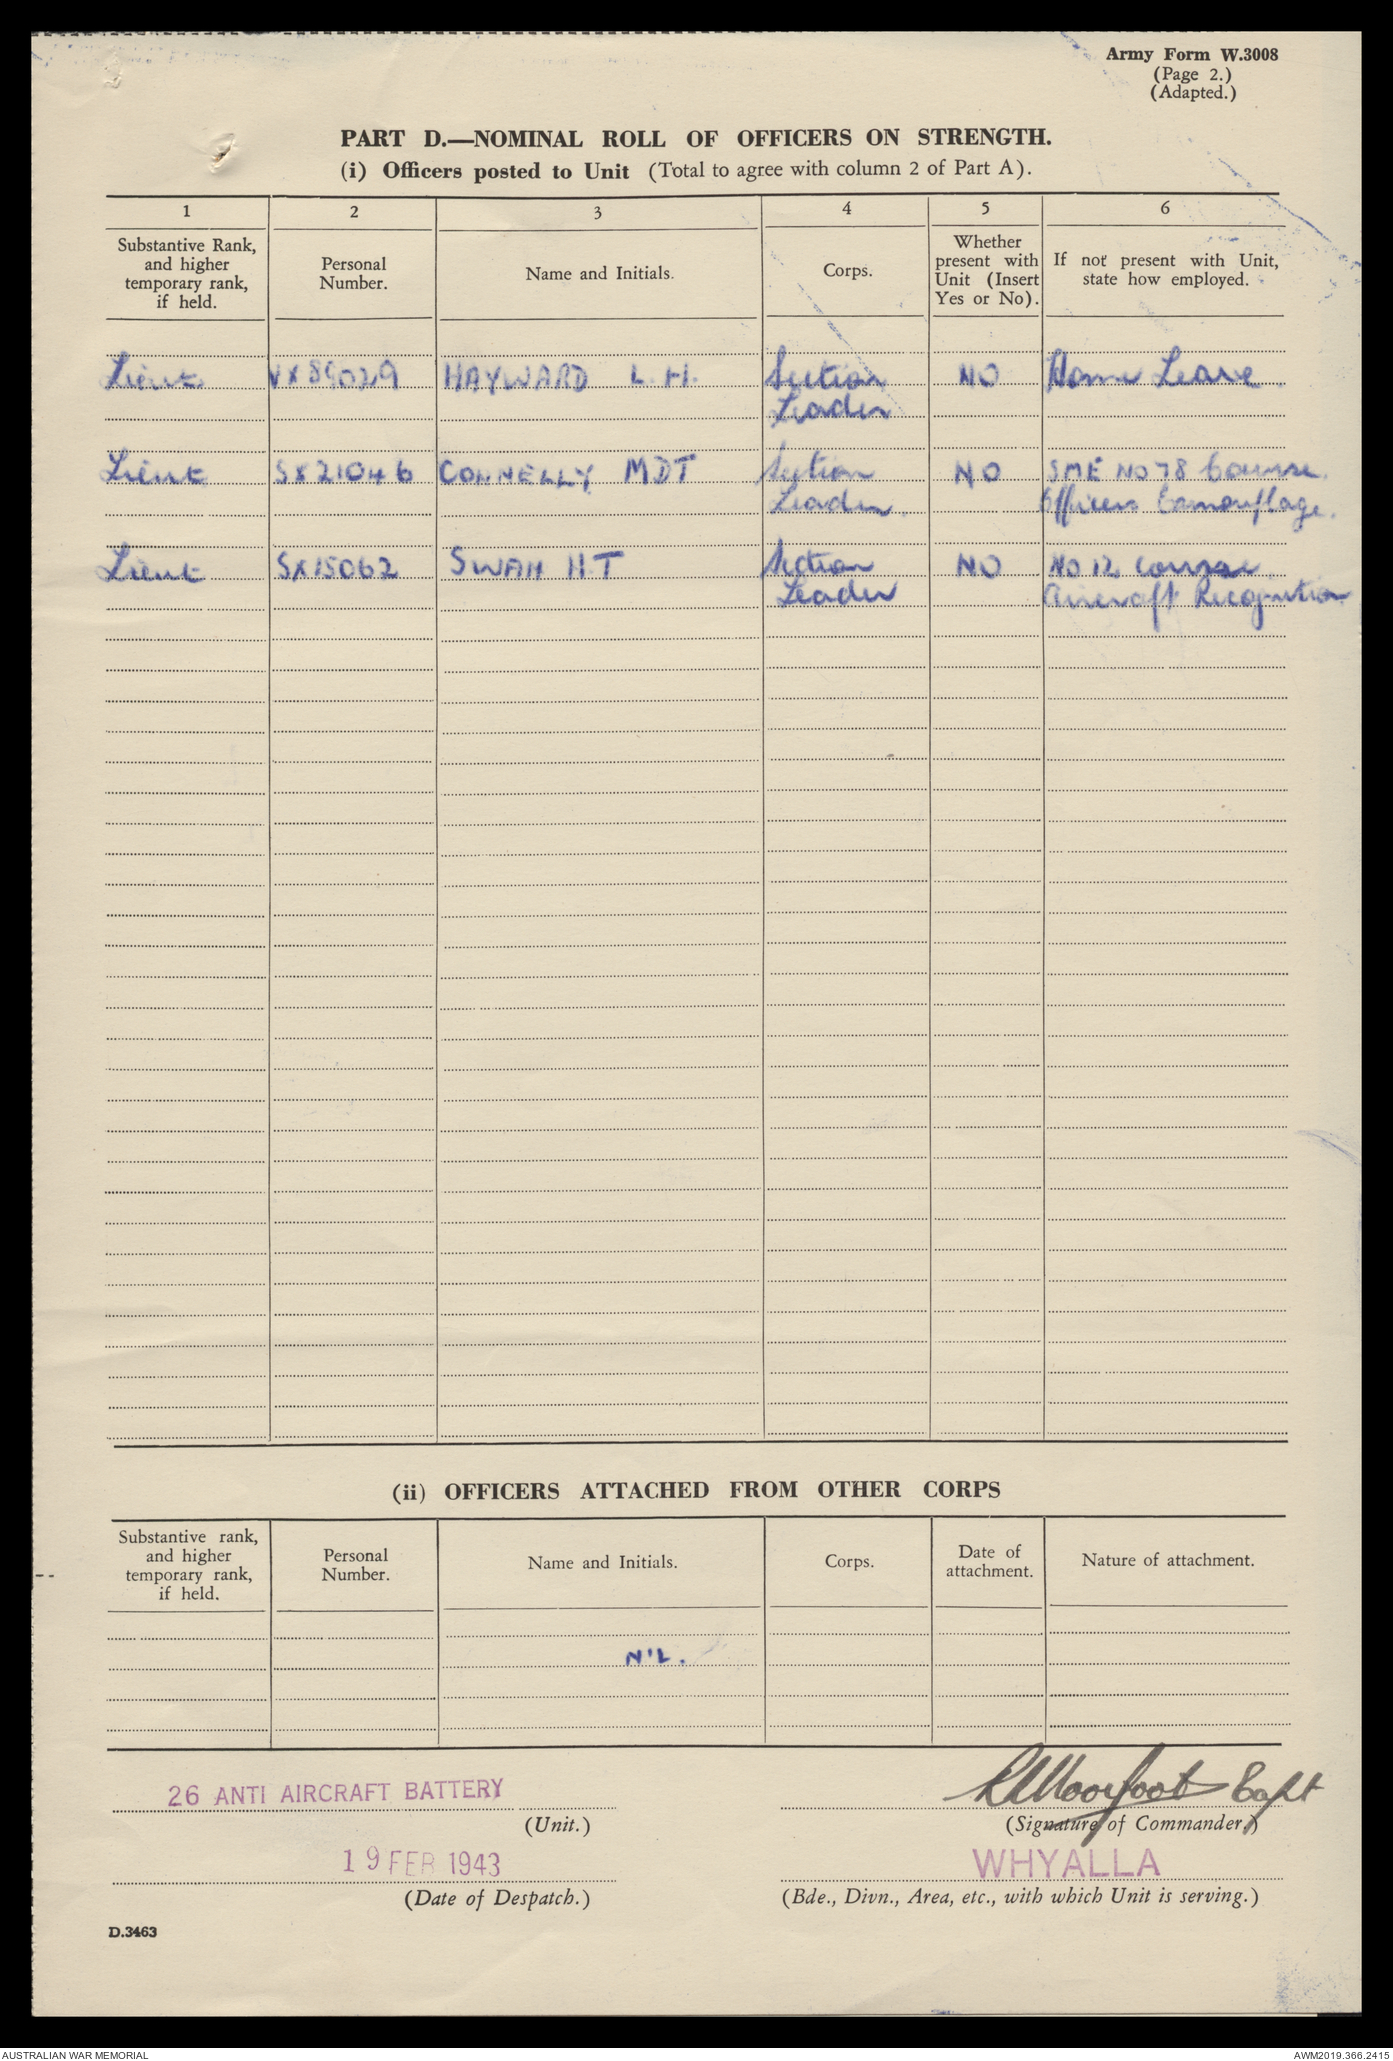 Army Form W.3008
(Page 2.)
(Adapted.)
PART D.—NOMINAL ROLL OF OFFICERS ON STRENGTH.
(i) Officers posted to Unit (Total to agree with column 2 of Part A).
1 2 3 4 5 6
Substantive Rank, and higher temporary rank, if held.
Personal Number.
Name and Initials.
Corps.
Whether present with Unit (Insert Yes or No).
If not present with Unit, state how employed.
Lieut VX89029 HAYWARD L. H. Section NO Home Leave.
Leader
Lieut SX21046 CONNELLY MDT Section NO SME NO 78 Course.
Leader. Officers Camouflage.
Lieut SX15062 SWAN H.T Section NO NO 12 course
Leader Aircraft Recognition
(ii) OFFICERS ATTACHED FROM OTHER CORPS
Substantive rank, and higher temporary rank, if held.
Personal Number.
Name and Initials.
Corps.
Date of attachment.
Nature of attachment.
NIL.
26 ANTI AIRCRAFT BATTERY
Capt
(Unit.) (Signature of Commander.)
19 FEB 1943 WHYALLA
(Date of Despatch.) (Bde., Divn., Area, etc., with which Unit is serving.)
D.3463
AUSTRALIAN WAR MEMORIAL AWM2019.366.2415